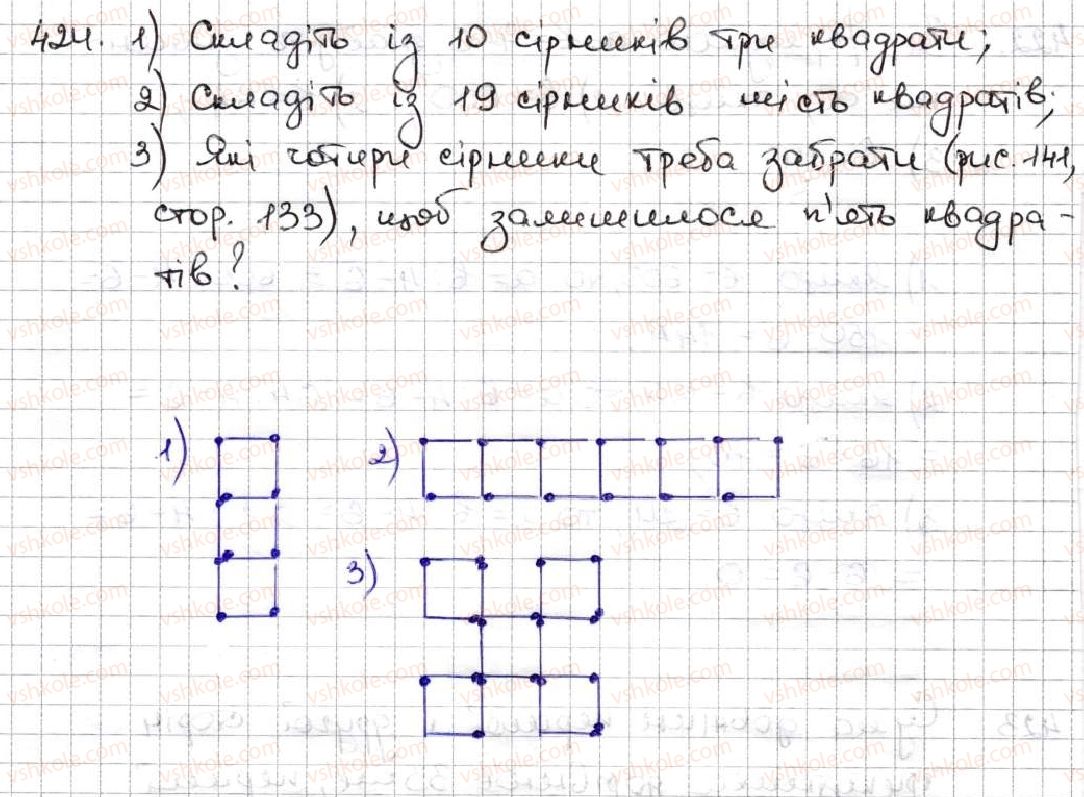 424. 1) Складіть із 10 сірників три квадрати;
2) Складіть із 19 сірників шість квадратів;
3) Які чотири сірники треба забрати (рис. 141,
стор. 133), щоб залишилося п'ять квадра-
тів?
1)
2)
3)